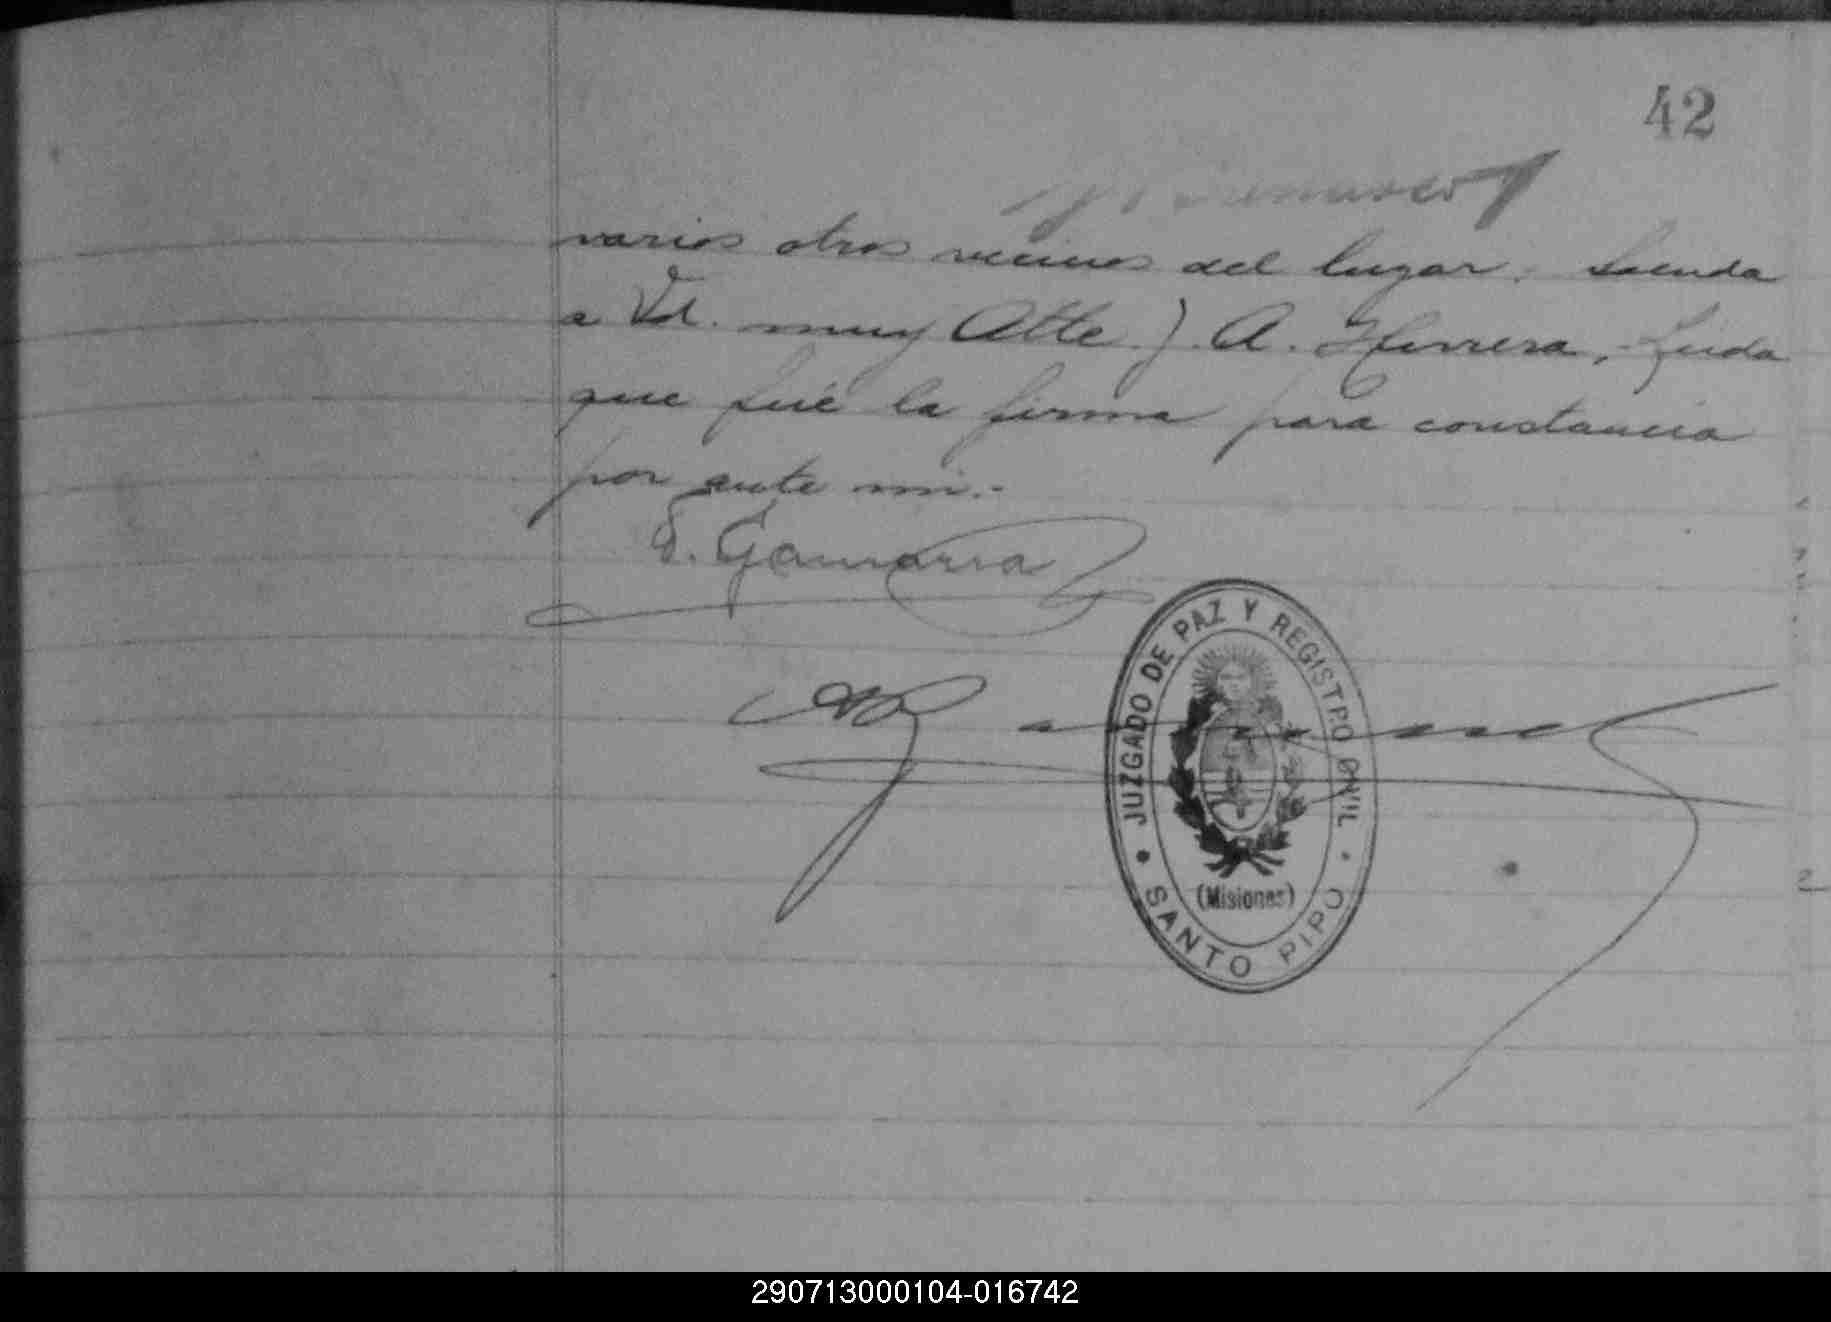 42
varios otros vecinos del lugar. Saluda
a Vd. muy Atte J. A. Herrera, - Leida
que fué la firma para constancia
por ante mi.-
Gamarra
JUZGADO DE PAZ Y REGISTRO CIVIL
(Misiones)
SANTO PIPO
290713000104-016742